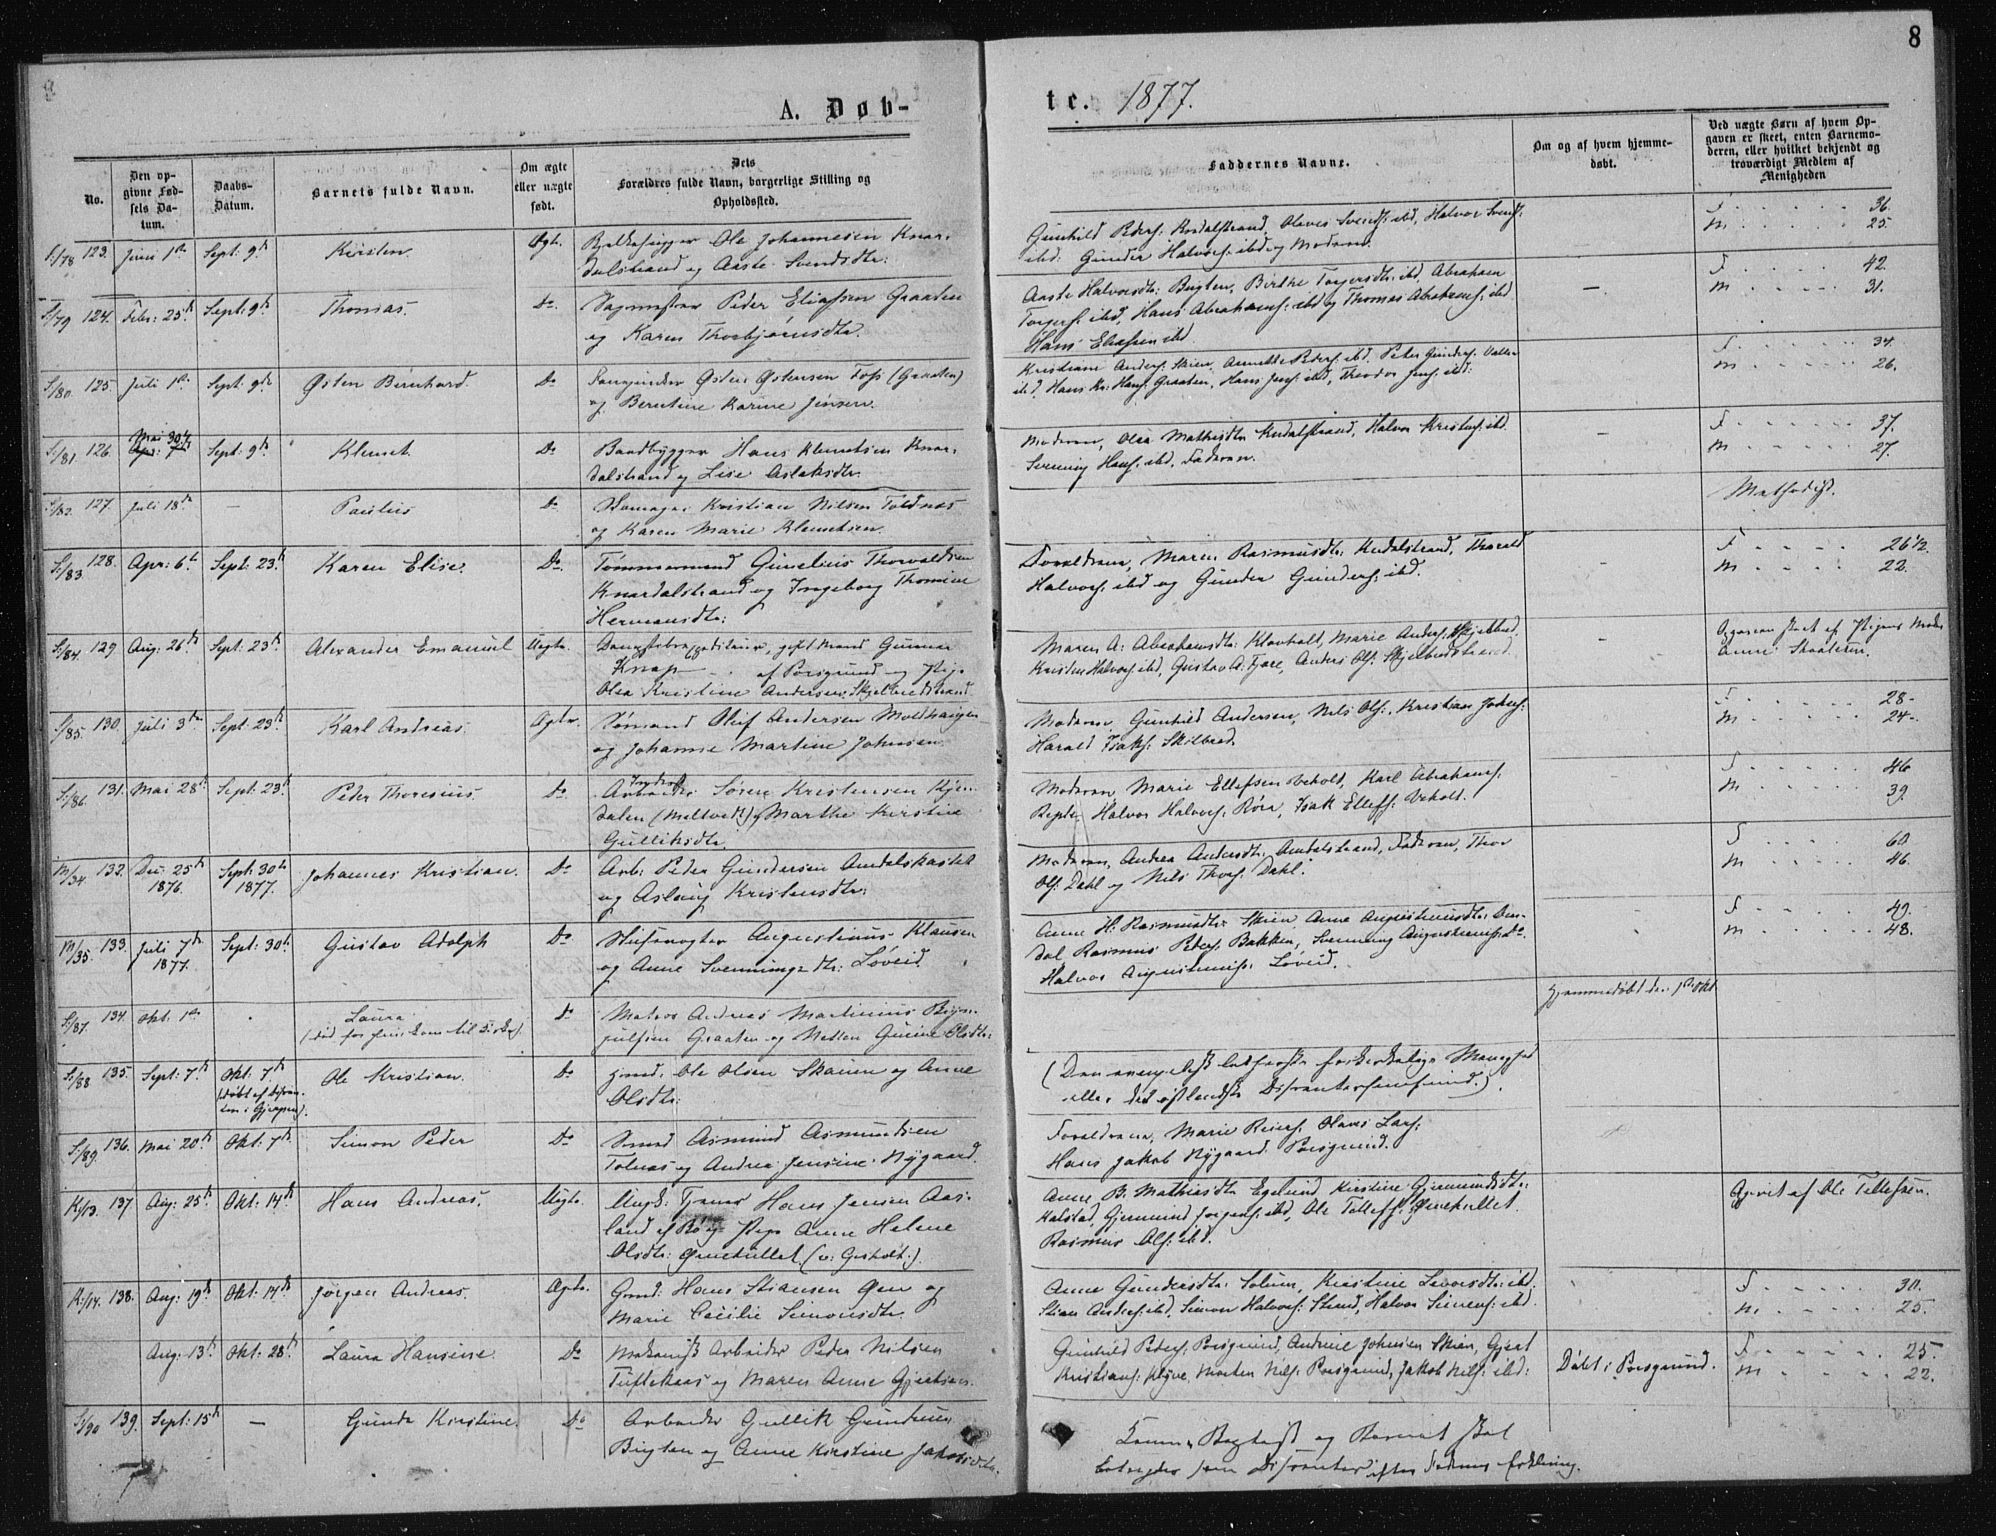 8
A. Døb-
te. 1877.
No.
Den op-
givne Fød-
sels Da-
tum.
Daabs-
Datum.
Barnets fulde Navn.
Om ægte
eller uægte
født.
Dets
Forældres fulde Navn, borgerlige Stilling og
Opholdssted.
Faddernes Navne.
Om og af hvem hjemme-
døbt.
Ved uægte Børn af hvem Op-
gaven er skeet, enten Barnemo-
deren, eller hvilket bekjendt og
troværdigt Medlem af
Menigheden
S/78 123. Juni 1ste Sept: 9de Kirsten Ægte. Ole Johannesen Knar-
dalstrand og Aaste Svendsdtr:
Gunhild Peders: Knadalstrand, Olaves Svends: ibd, Halvor Svends:
ibd: Gunder Halvors: ibd og Moderen.
F 36.
M 25.
S/79 124. Febr: 25de Sept: 9de Thomas. Do. Peder Eliassen Graaten
og Karen Thorbjørnsdtr.
Aaste Halvorsdtr: Bugten, Birthe Torgersdtr: ibd, Abraham
Torgers: ibd, Hans Abrahams: ibd og Thomas Abrahams: ibd
Hans Eliassen ibd
F 42.
M 31.
S/80. 125. Juli 1ste Sept: 9de Østen Bernhard. Do Østen Østensen Foss (Graaten)
og Berntine Karine Jensen.
Anders: Skien, Peders: ibd, Peter Gunders:
ibd, Hans Kr: Hans: Graaten, Hans Jens: ibd, Theodor Jens: ibd:
F 34.
M 26.
S/81. 126. Mai 30te Sept: 9de Klemet. Do Baadbygger Hans Klemetsen Knar-
dalstrand og Lise Aslaksdtr.
Moderen, Olea Mathisdtr Knadalstrand, Halvor Kristens: ibd.
Svenning Hans: ibd, Faderen.
F 37.
M 27.
S/82. 127. Juli 18de – Paulus Do Kristian Nilsen Toldnæs
og Karen Marie Klemetsen.
Methodist.
S/83. 128. Apr: 6te Sept: 23de Karen Elise. Do. Tømmermand Gunelius Thorvaldsen
Knardalstrand og Ingeborg Thomine
Hermansdtr:
Forældrene, Maren Rasmusdtr: Knadalstrand, Thorald
Halvors: ibd og Gunder Gunders: ibd.
F 26½.
M 22.
S/84. 129 Aug: 26de Sept: 23de Alexander Emanuel Uægte. gift Mand Gunnar
Knap af Porsgrund og Pige
Olea Kristine Andersen, Skjelbredstrand
Maren A: Abrahamsdtr: Klovholt, Marie Anders: Skjelbred.
Kristen Halvors: ibd, Gustav A: Fjære, Anders Ols: Skjelbredstrand.
Opgaven skeet af Pigens Moder
Anne
S/85. 130. Juli 3die Sept: 23de Karl Andreas. Ægte. Sømand Oluf Andersen Moldhaugen
og Johanne Martine Johnsen
Moderen, Gunhild Andersen, Nils Ols:, Kristian Johns:
Harald Isaks: Skilbred.
F 28-
M 24-
S/86. 131. Mai 28de Sept: 23de Peder Thoresius. Do Arbeider Søren Kristensen Kjen-
dalen (Meltvedt) og Marthe Kirstine
Gulliksdtr.
Moderen, Marie Ellefsen Veholt, Karl Abrahams:
Halvor Halvors: Røra, Isak Ellefs: Veholt.
F 46
M 39.
M/34. 132. Dec: 25de Sept: 30te Johannes Kristian. Do Arb: Peder Gundersen Amdalskastet
1876. 1877. og Aslaug Kristensdtr:
Moderen, Andrea Andersdtr: Amdalstrand, Faderen, Thor
Ols: Dahl og Nils Thors: Dahl.
F 60
M 46.
M/35. 133. Juli 7de Sept: 30te Gustav Adolph Do Augustinus Klausen
1877. og Anne Svenningsdtr: Løveid.
Anne H: Rasmusdtr: Skien, Anne Augustinusdtr:
dal, Rasmus Peders: Bakken, Svenning Augustinus: Do
Halvor Augustinus: Løveid.
F 49.
M 48.
S/87. 134. Okt. 1ste Laura Do Matros Andreas Martinius Bryn-
julfsen Graaten og Metten Gurine Olsdtr:
Hjemmedøbt den 1ste Okt
S/88 135. Sept: 7de Okt. 7de Ole Kristian. Do Gmd. Ole Olsen Skauen og Anne
(døbt af Dissen-
ten i Gjerpen). Olsdtr:
(Den evangelisk lutherske frikirkelige Menighed
eller det østlandske Dissentersamfund.)
S/89. 136. Mai 20de Okt. 7de Simon Peder Do Smed Asmund Asmundsen
Tolnæs og Andrea Jensine Nygaard.
Forældrene, Marie Reiers: Olaus Lars:
Hans Jakob Nygaard Porsgrund.
K/13. 137 Aug: 25de Okt: 14de Hans Andreas. Uægte. Ungk: Tjener Hans Jensen Aas-
land og Pige Anne Helene
Olsdtr: Ønekullet.
Anne B. Mathiasdtr: Egelund, Kirstine Gjermundsdtr:
Kalstad, Gjermund Jørgens: ibd, Ole Tollefs: Ønekullet
Rasmus Ols: ibd.
Opgivet af Ole Tollefsen.
K/14. 138. Aug: 19de Okt: 14de Jørgen Andreas. Ægte. Gmd: Hans Stiansen Øen og
Marie Cecilie Simonsdtr.
Anne Gundersdtr: Solum, Kirstine Sivorsdtr: ibd.
Stian Anders: ibd, Simon Halvors: Strand, Halvor Simons: ibd.
F 30.
M 25.
Aug: 13de Okt: 28de Laura Hansine. Do Mekanisk Arbeider Peder Nilsen
Tuftekaas og Maren Anne Gjertsen
Gunhild Peders: Porsgrund, Andrine Johnsen Skien, Gjert
Kristians: Klyve, Morten Nils: Porsgrund, Jakob Nils: ibd:
Døbt i Porsgrund.
F 25.
M 22.
S/90 139. Sept: 15de – Gunda Kirstine. Do Arbeider Gullik Gundersen
Bugten og Anne Kirstine Jakobsdtr.
Baptist og Barnet skal
betragtes som Dissenter efter Faderens Erklæring.